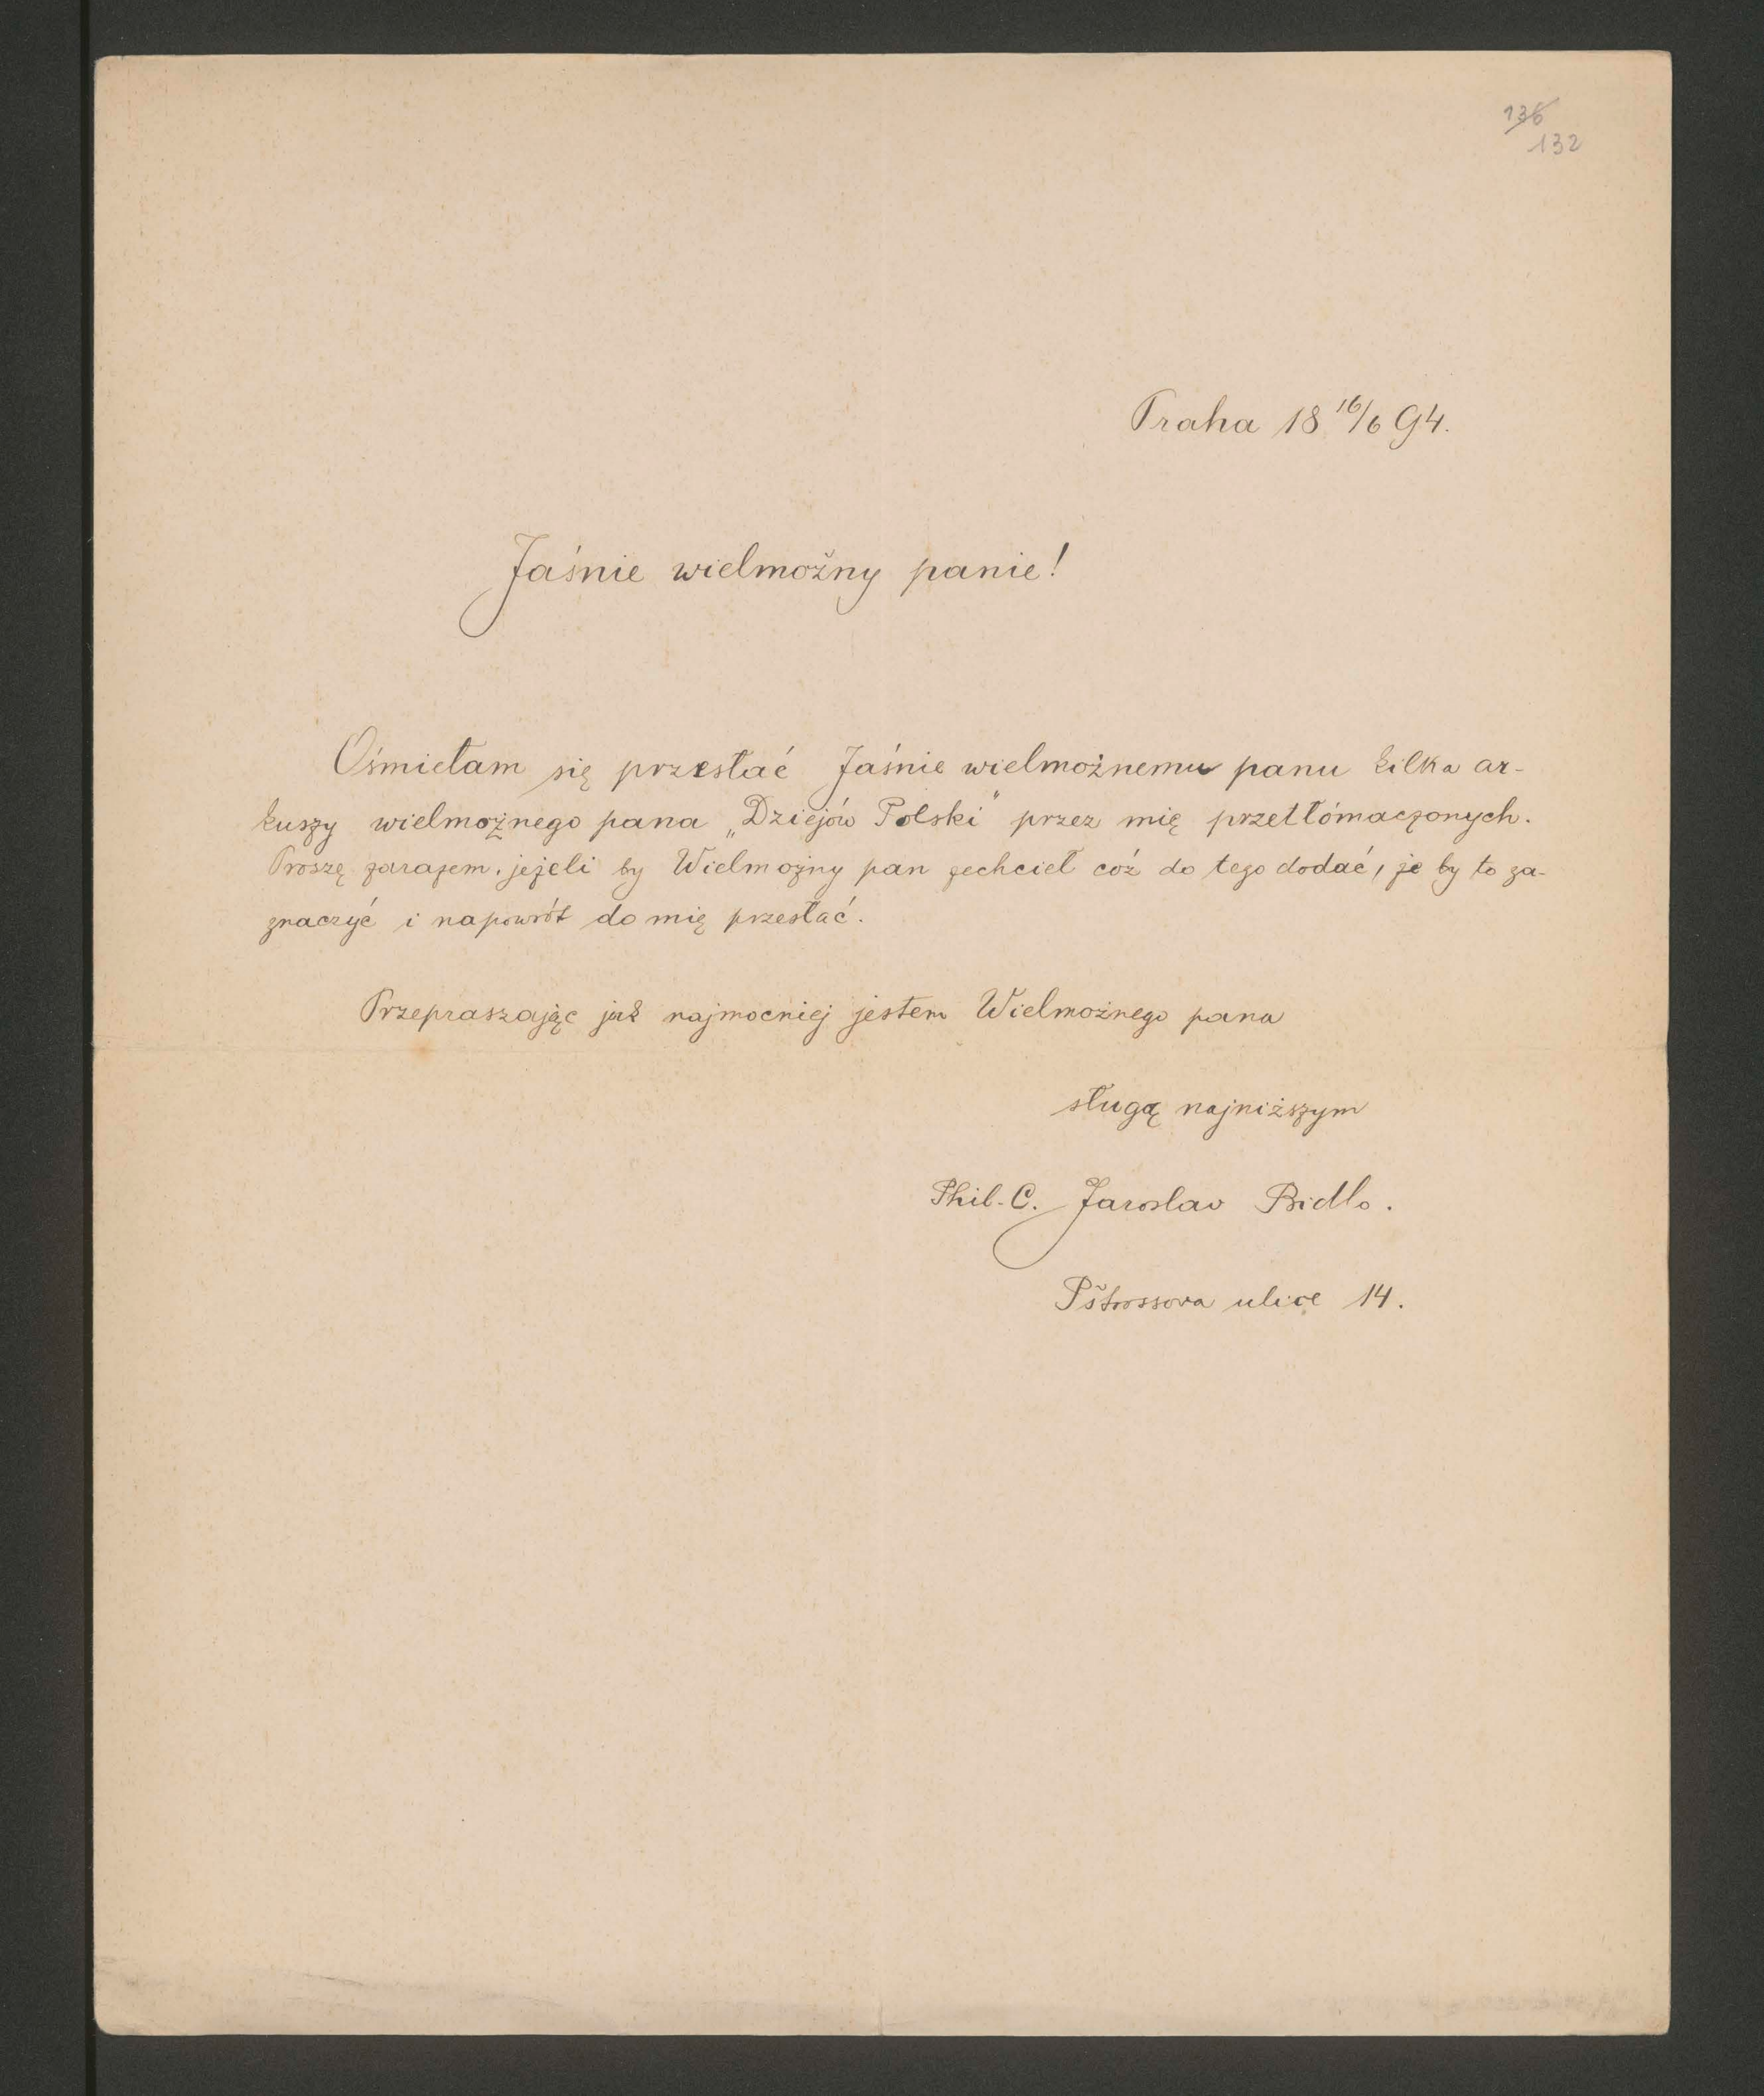 136
132
Praha 18 16/6 94.
Jaśnie wielmožny panie!
Ośmiełam się przesłać Jaśnie wielmożnemu panu kilka ar-
kuszy wielmożnego pana „Dziejów Polski" przez mię przetłómaczonych.
Proszę zarazem, jeżeli by Wielmożny pan zechcieł coź do tego dodać, że by to za-
znaczyć i napowrót do mię przesłać.
Przepraszając jak najmocniej jestem Wielmożnego pana
sługą najniższym
Phil. C. Jaroslav Bidlo.
Pštrossova ulice 14.